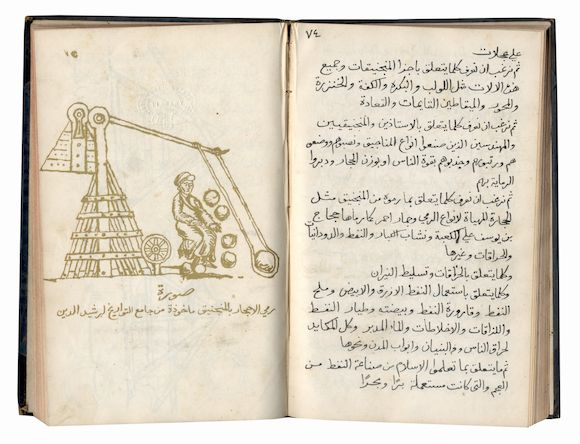 ٧٤
على عجلات
ثم نرغب ان نعرف كلما يتعلق باجزا المنجنيقات وجميع
هذه الالات مثل اللولب والبكرة والكفة والخنزيرة
والمحور والمقاطين القايمات والقعادة
ثم نرغب ان نعرف كلما يتعلق بالاستاذين والمنجنيقيين
والمهندسين الذين صنعوا انواع المناجيق ونصبوهم ووضعو
هم ورتبوهم وجذبوهم بقوة الناس او بوزن الحجار ودبروا
الرماية بهم
ثم نرغب ان نعرف كلما يتعلق بما رموه من المنجنيق مثل
الحجارة المهياة لانواع الرمي وحجار احمر كما رماها حجاج
بن يوسف على الكعبة ونشاب النار والنفط
والحراقات وغيرها
وكلما يتعلق بالحراقات وتسليط النيران
وكلما يتعلق باستعمال النفط الازرق والابيض وملح
النفط وقارورة النفط وبيضته وطيار النفط
واللزاقات والاخلاطات والماء المدبر وكل المكايد
لحراق الناس والبنيان وابواب المدن ونحوها
ثم ما يتعلق بما تعلموا الاسلام من صناعة النفط من
العجم والتي كانت مستعملة برًا وبحرًا
٧٥
صورة
رمي الاحجار بالمنجنيق ماخوذة من جامع التواريخ لرشيد الدين